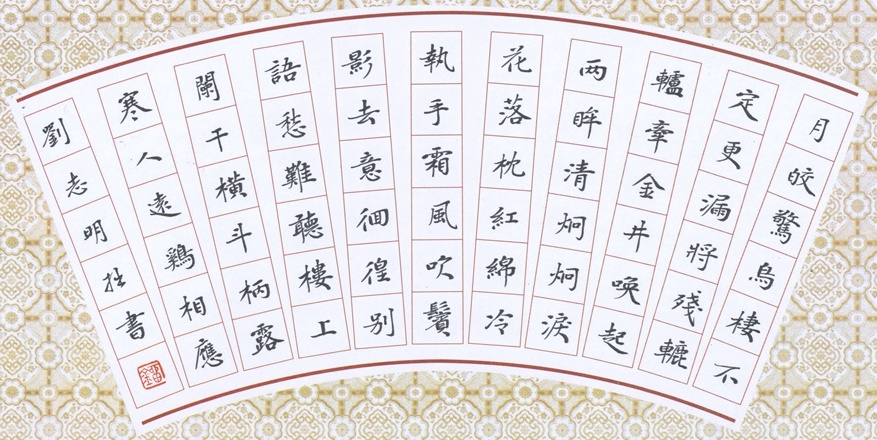 月皎驚烏棲不
定更漏將殘轆
轤牽金井喚起
两眸清炯炯淚
花落枕紅綿冷
執手霜風吹鬢
影去意徊徨别
語愁難聽樓上
闌干橫斗柄露
寒人遠鷄相應
劉志明拙書